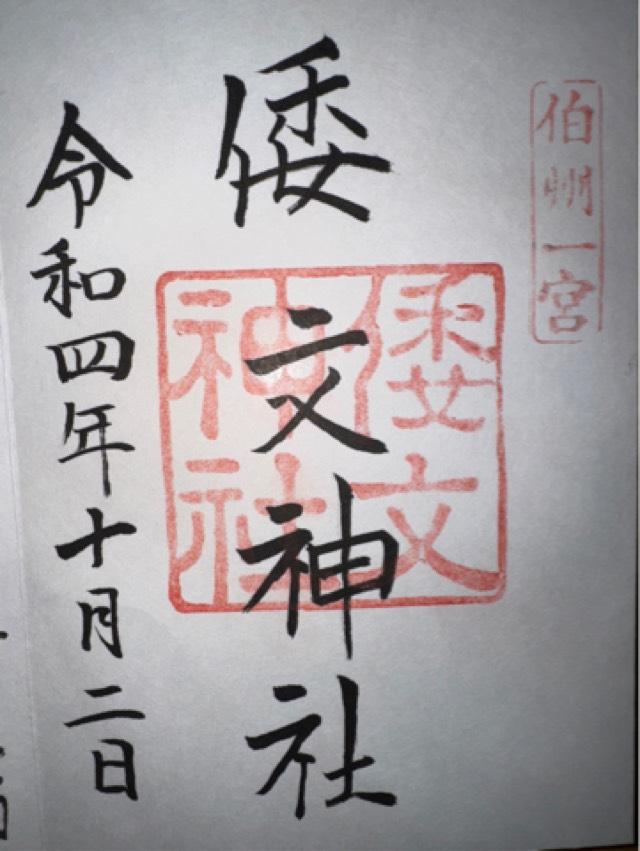 伯州一宮
倭文神社
倭文
神社
令和四年十月二日